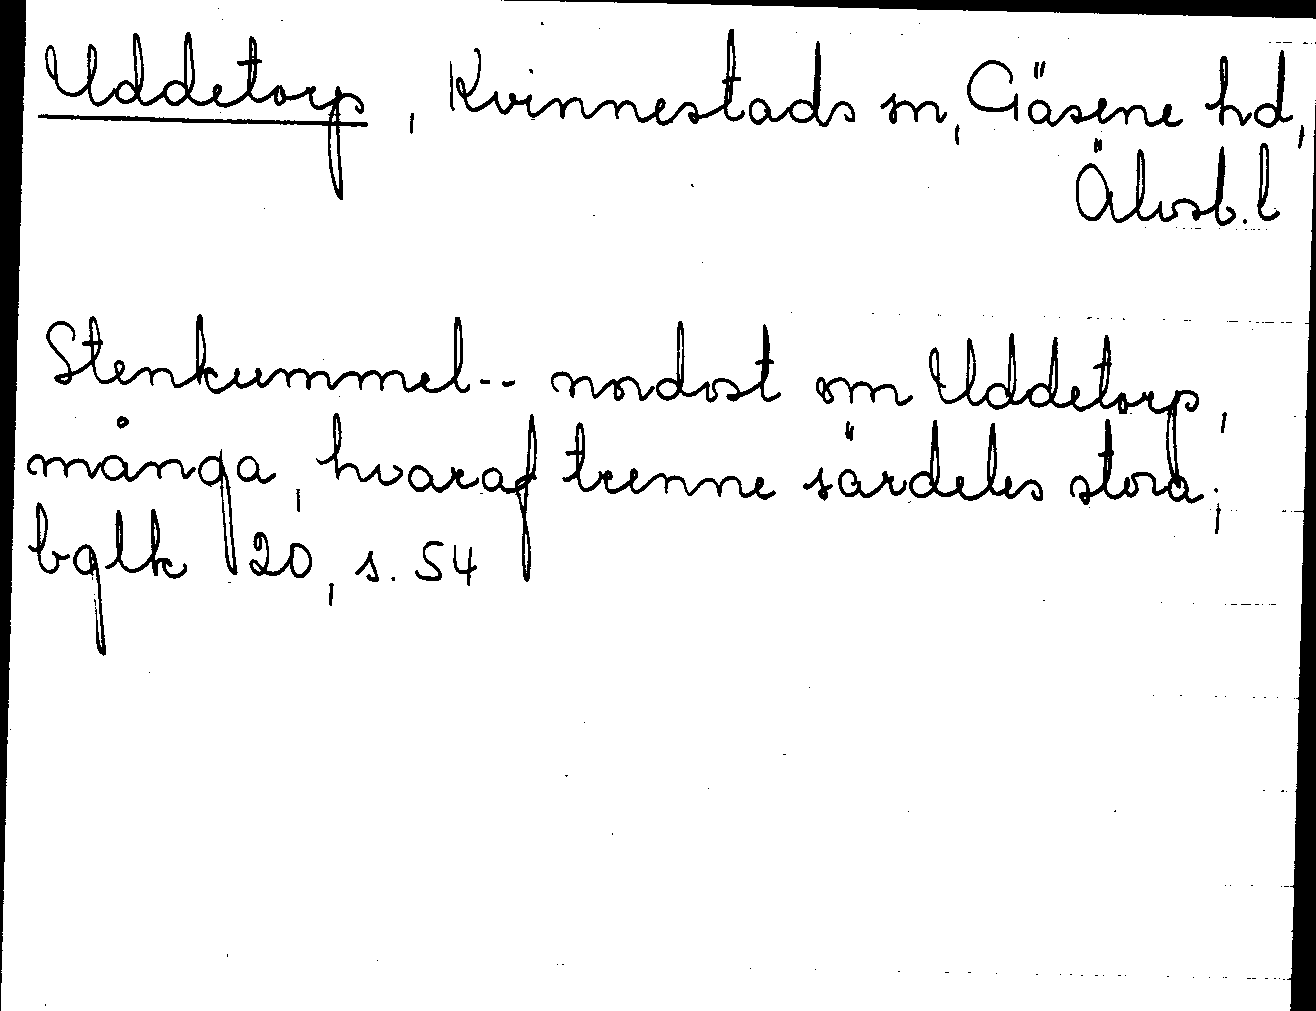 Uddetorp, Kvinnestads sn, Gäsene hd,
Älvsb. l
Stenkummel-- nordost om Uddetorp,
många, hvaraf trenne särdeles stora;
bglk 20, s. 54